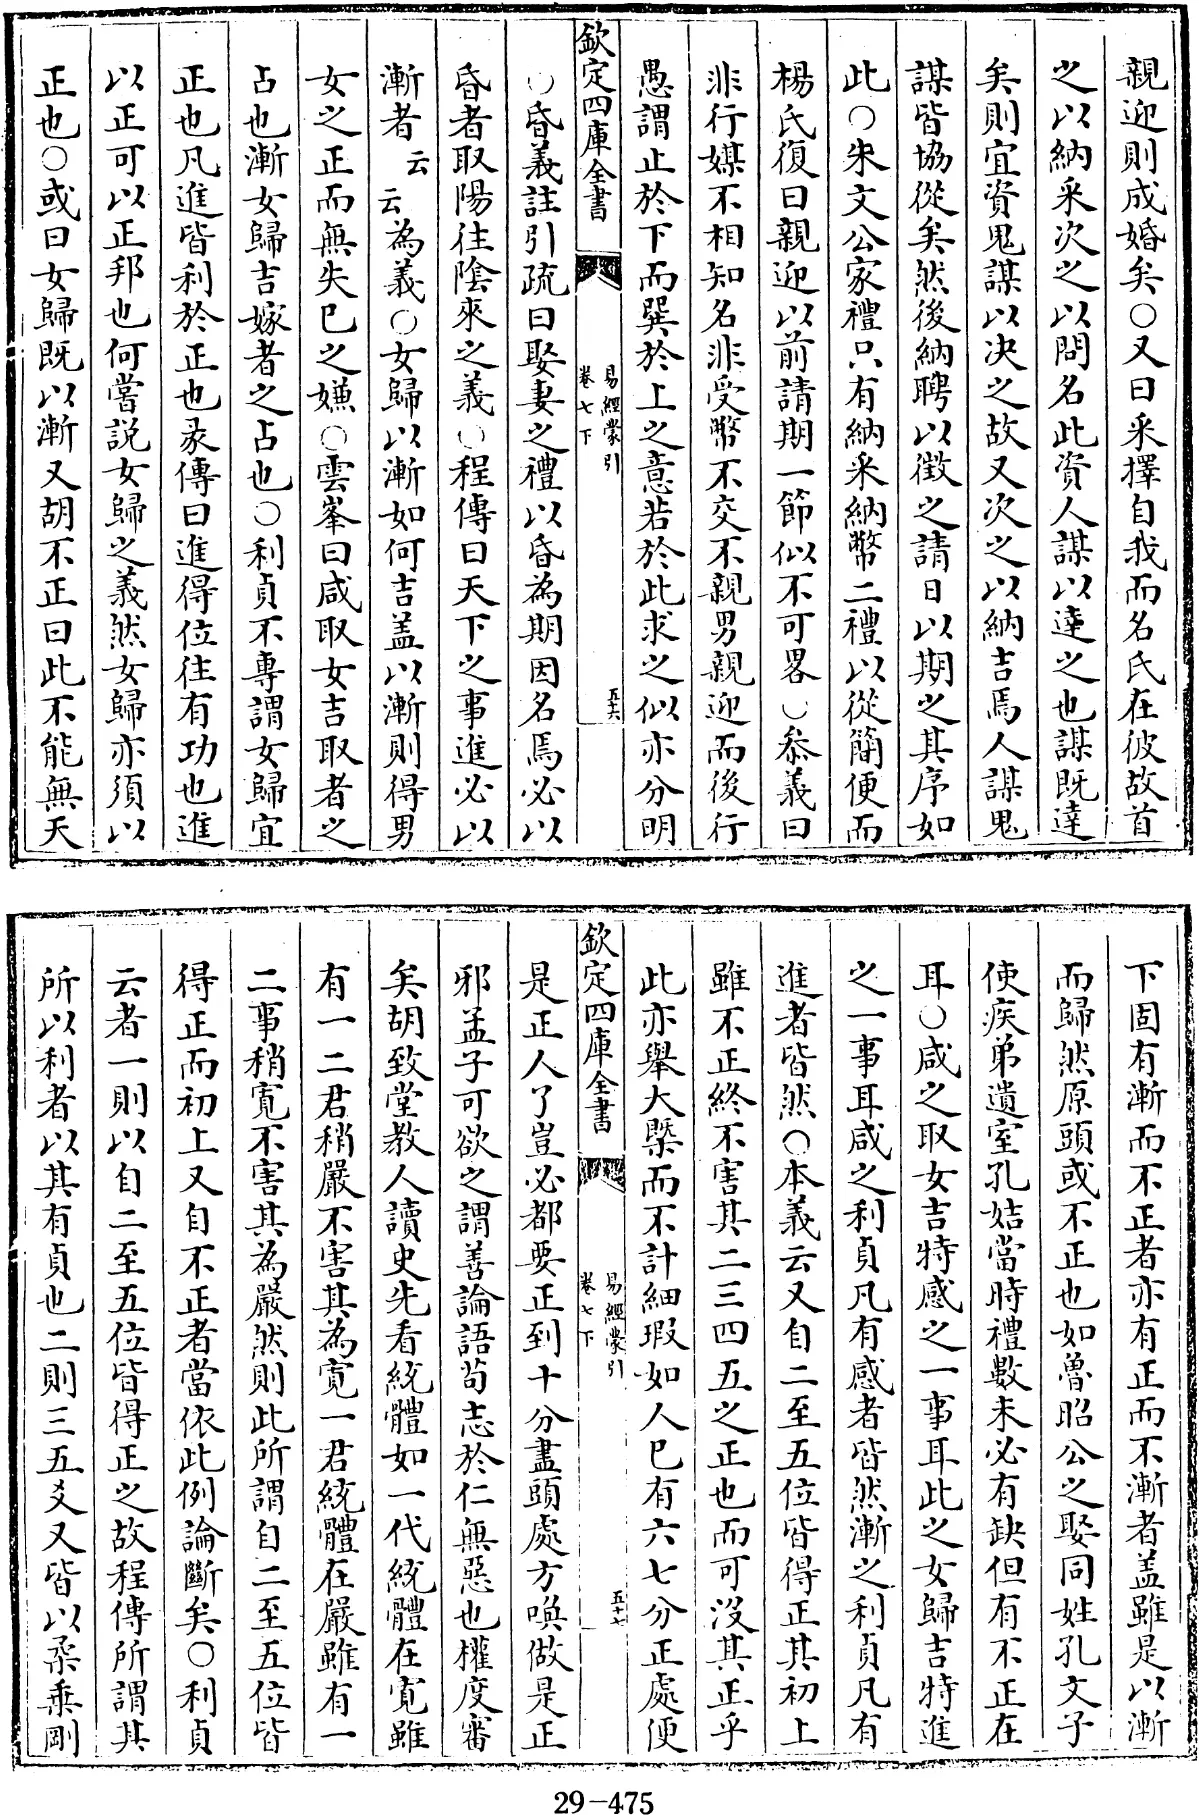 親迎則成婚矣○又曰采擇自我而名氏在彼故首
之以納采次之以問名此資人謀以達之也謀既達
矣則宜資鬼謀以決之故又次之以納吉焉人謀鬼
謀皆協從矣然後納聘以徴之請日以期之其序如
此○朱文公家禮只有納采納幣二禮以從簡便而
楊氏復曰親迎以前請期一節似不可畧○叅義曰
非行媒不相知名非受幣不交不親男親迎而後行
愚謂止於下而巽於上之意若於此求之似亦分明
欽定四庫全書
易經蒙引
卷七下
五六
○昏義註引疏曰娶妻之禮以昏為期因名焉必以
昏者取陽往陰來之義○程傳曰天下之事進必以
漸者云云為義○女歸以漸如何吉盖以漸則得男
女之正而無失已之嫌○雲峯曰咸取女吉取者之
占也漸女歸吉嫁者之占也○利貞不專謂女歸宜
正也凡進皆利於正也彖傳曰進得位往有功也進
以正可以正邦也何嘗説女歸之義然女歸亦須以
正也○或曰女歸既以漸又胡不正曰此不能無天
下固有漸而不正者亦有正而不漸者盖雖是以漸
而歸然原頭或不正也如魯昭公之娶同姓孔文子
使疾弟遺室孔姞當時禮數未必有缺但有不正在
耳○咸之取女吉特感之一事耳此之女歸吉特進
之一事耳咸之利貞凡有感者皆然漸之利貞凡有
進者皆然○本義云又自二至五位皆得正其初上
雖不正終不害其二三四五之正也而可沒其正乎
此亦舉大槩而不計細瑕如人已有六七分正處便
欽定四庫全書
易經蒙引
卷七下
五十七
是正人了豈必都要正到十分盡頭處方喚做是正
邪孟子可欲之謂善論語苟志於仁無惡也權度審
矣胡致堂教人讀史先看統體如一代統體在寛雖
有一二君稍嚴不害其為寛一君統體在嚴雖有一
二事稍寛不害其為嚴然則此所謂自二至五位皆
得正而初上又自不正者當依此例論斷矣○利貞
云者一則以自二至五位皆得正之故程傳所謂其
所以利者以其有貞也二則三五爻又皆以柔乗剛
29-475